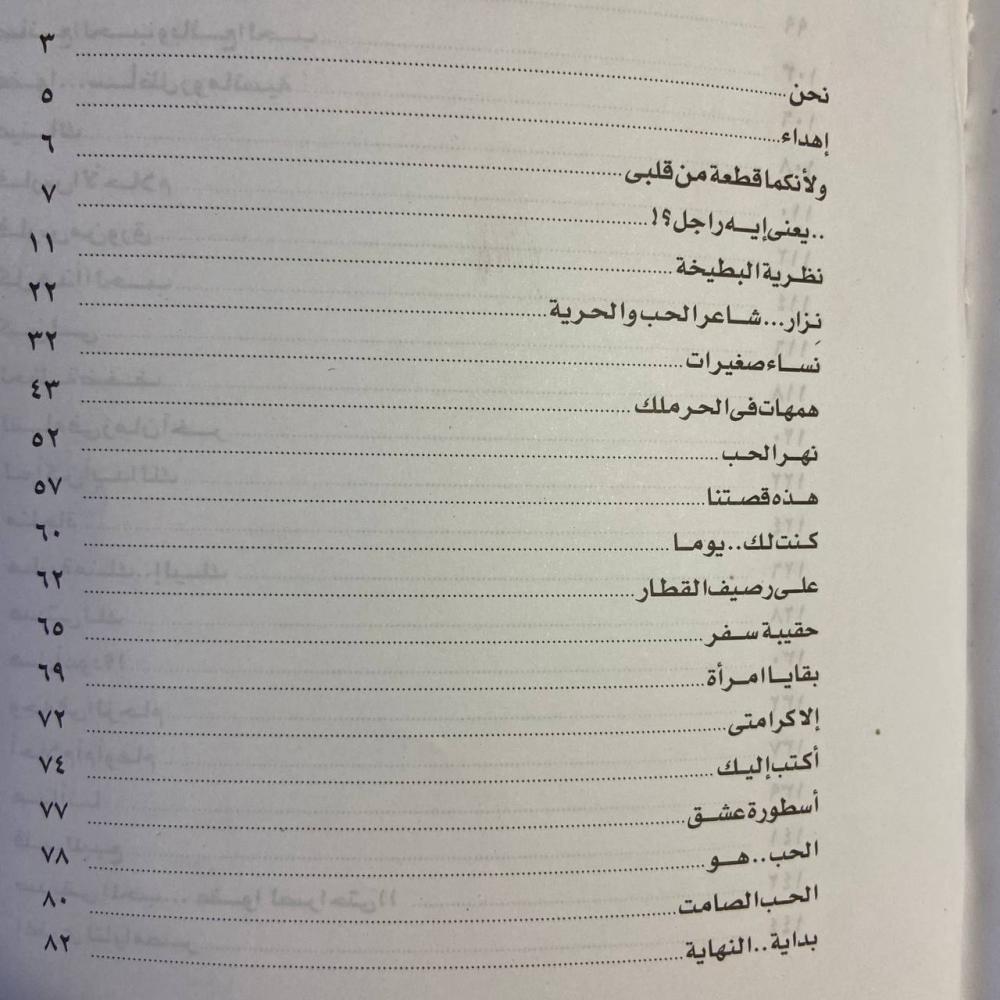 نحن ٣
إهداء ٥
ولأنكما قطعة من قلبى ٦
..يعنى إيه راجل؟! ٧
نظرية البطيخة ١١
نِزار...شاعر الحب والحرية ٢٢
نساء صغيرات ٣٢
همهات فى الحرملك ٤٣
نهر الحب ٥٢
هذه قصتنا ٥٧
كنت لك..يوما ٦٠
على رصيف القطار ٦٢
حقيبة سفر ٦٥
بقايا امرأة ٦٩
إلا كرامتى ٧٢
أكتب إليك ٧٤
أسطورة عشق ٧٧
الحب..هو ٧٨
الحب الصامت ٨٠
بداية..النهاية ٨٢